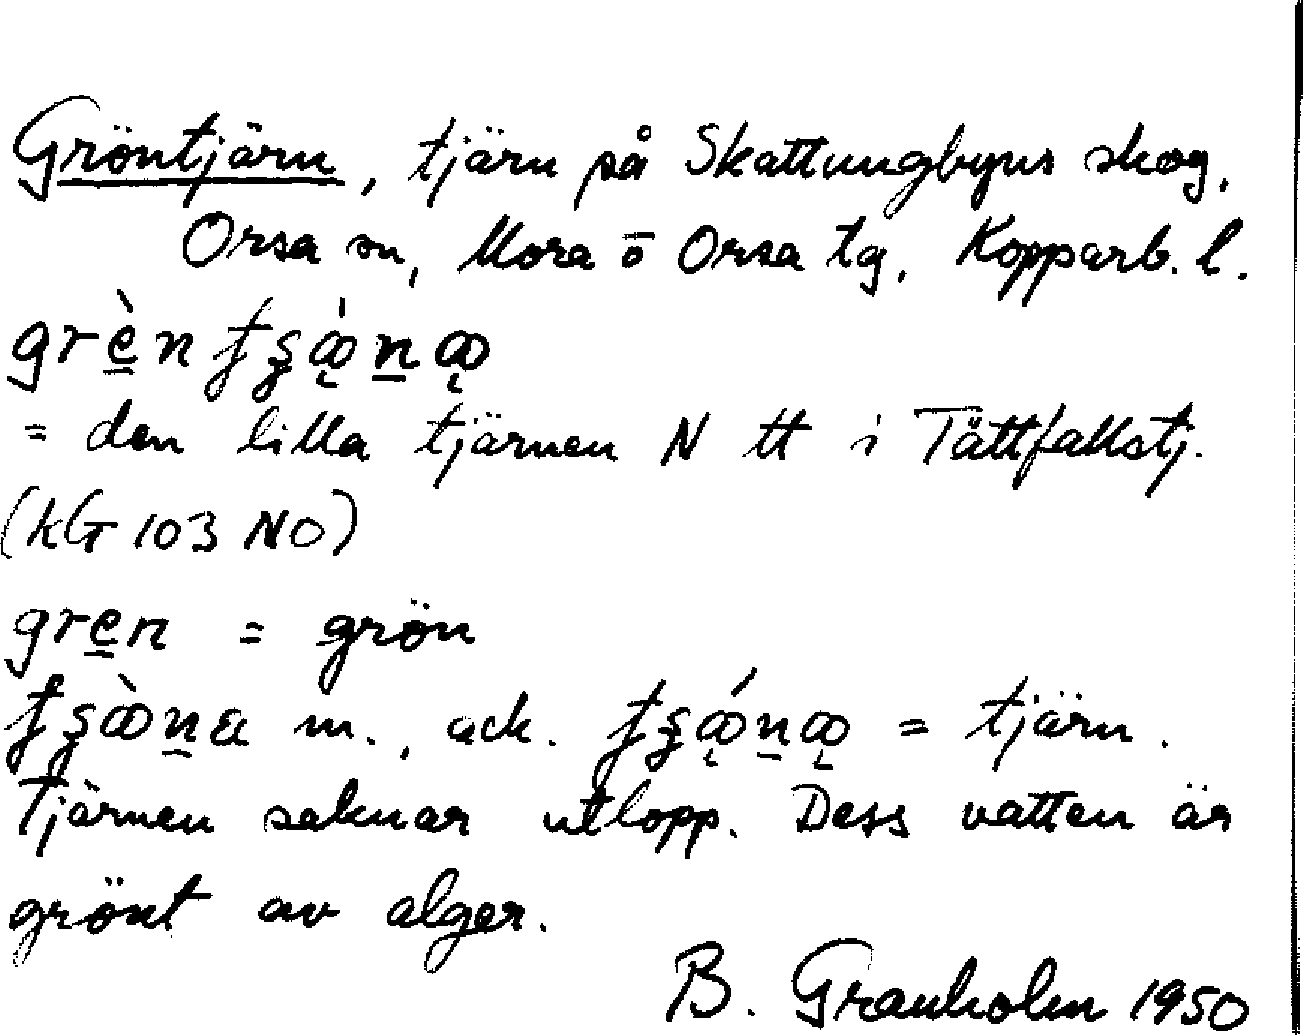 Gröntjärn, tjärn på Skattungbyns skog,
Orsa sn, Mora o Orsa tg, Kopparb. l.
= den lilla tjärnen N tt i Tättfallstj.
(kG 103 NO)
gren = grön
m., ack. = tjärn.
Tjärnen saknar utlopp. Dess vatten är
grönt av alger.
B. Granholm 1950